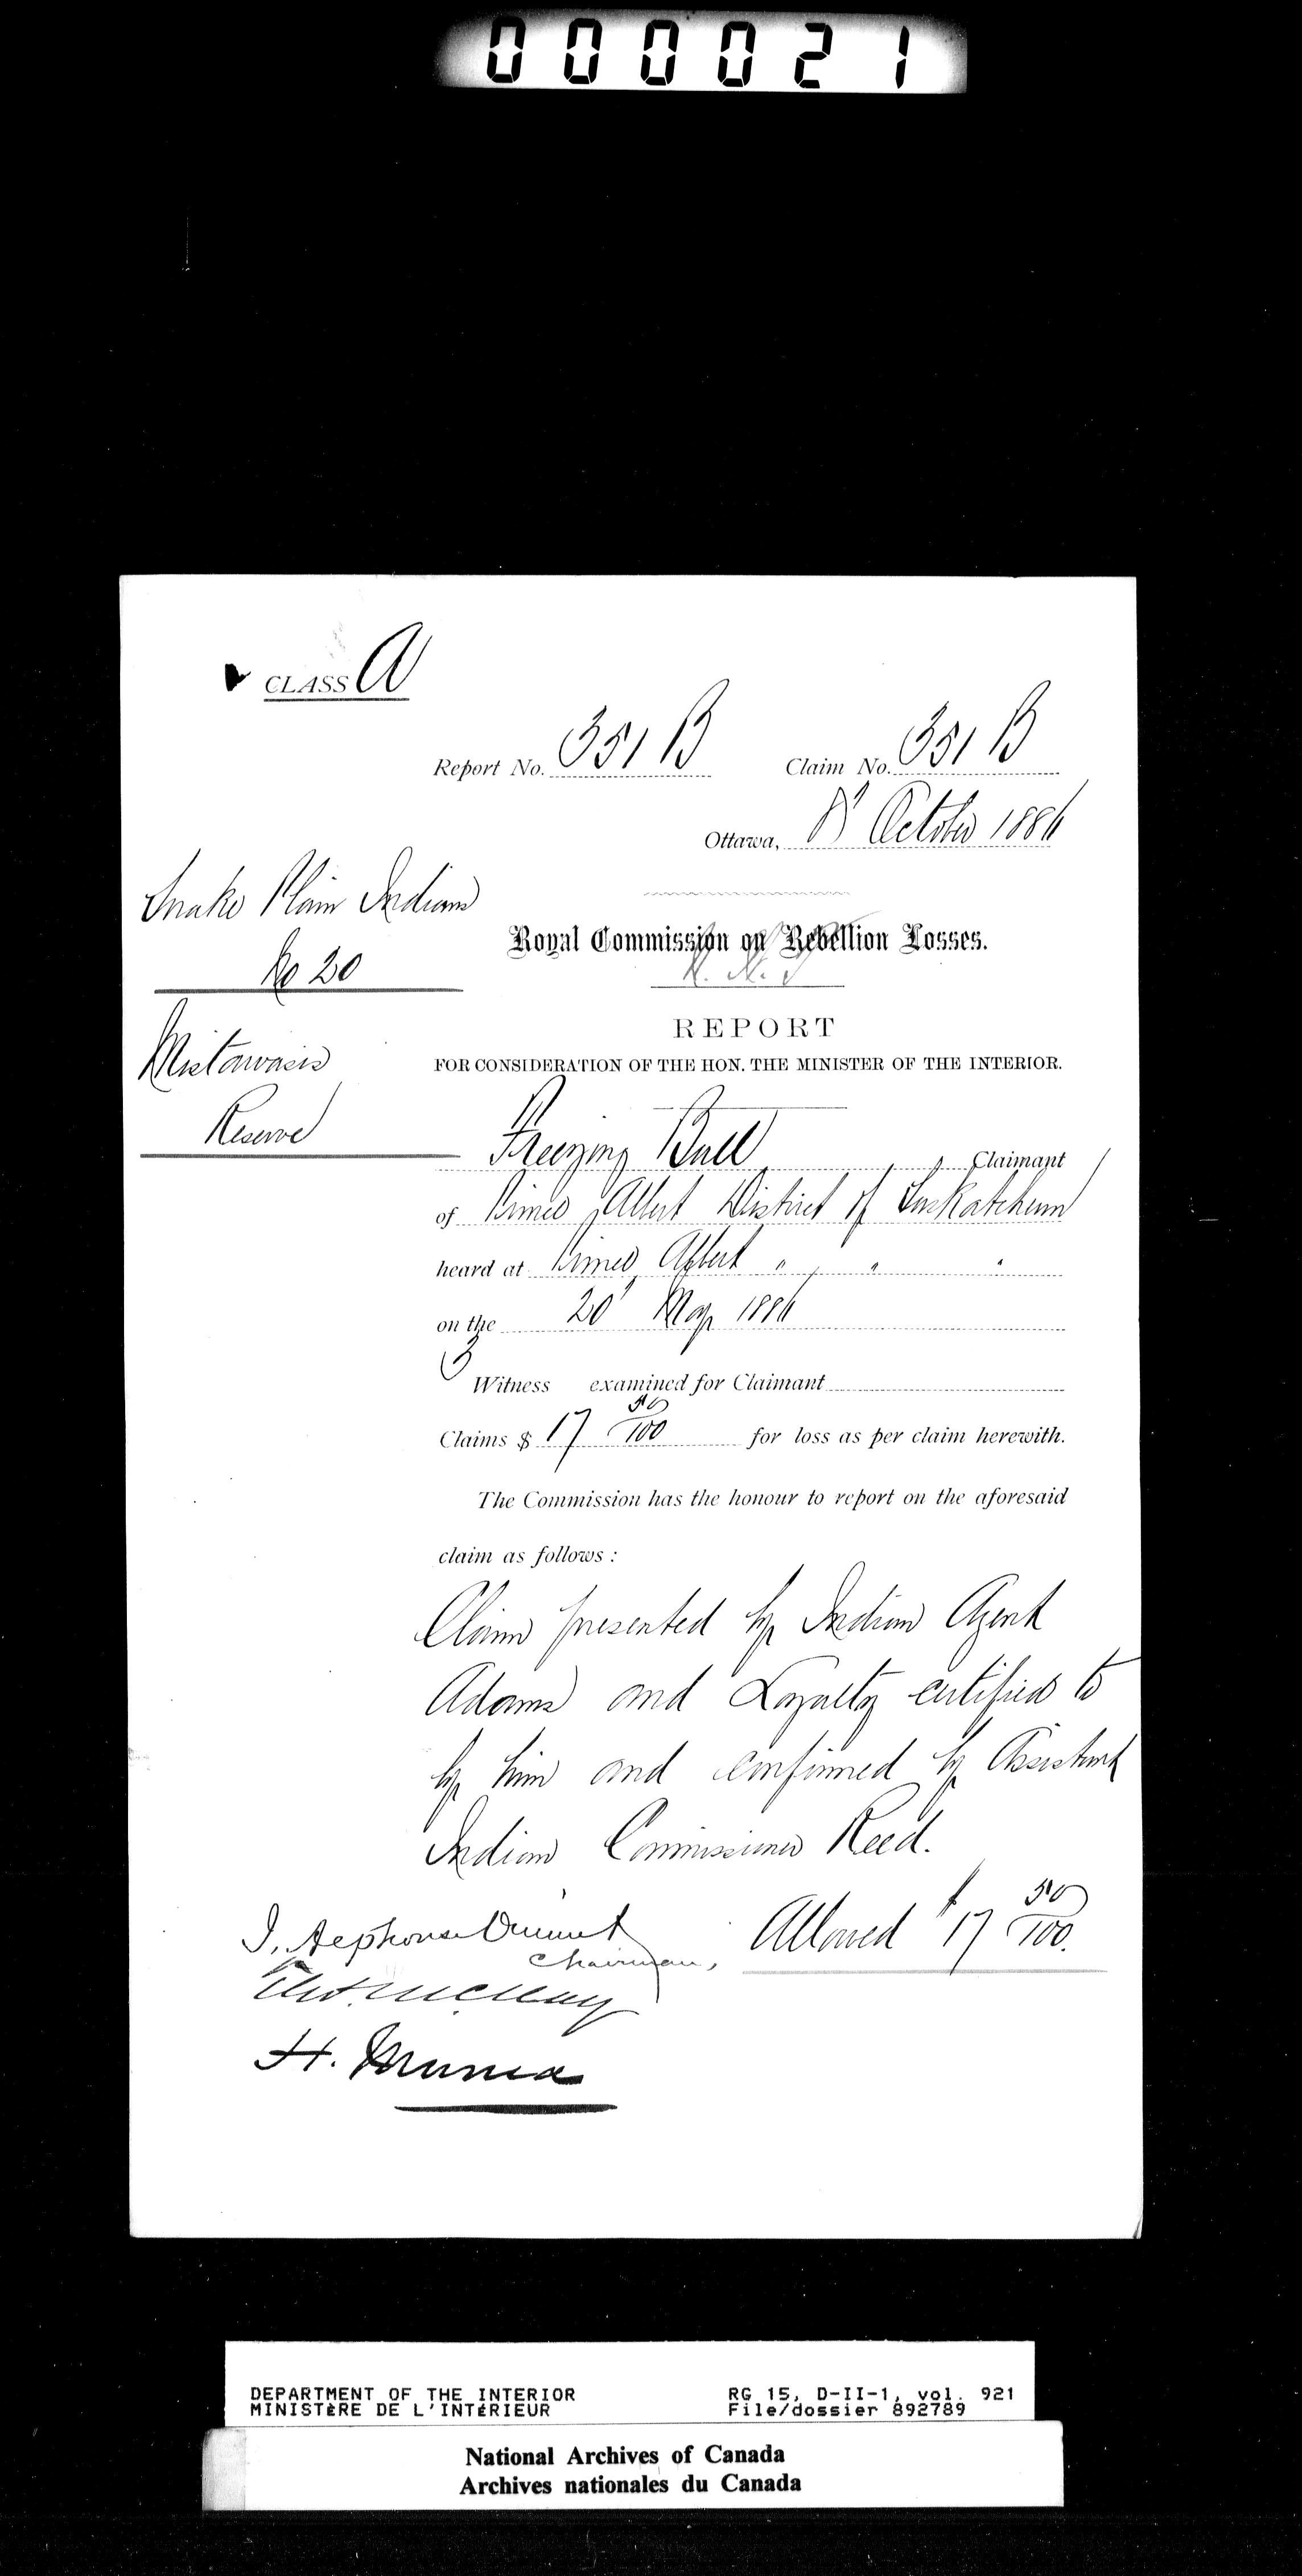 000021
CLASS A
Report No. 351 B Claim No. 351 B
Ottawa, 8' October 1886
Snake Plain Indians
No 20
Royal Commission on Rebellion Losses.
Mistawasis
Reserve
REPORT
FOR CONSIDERATION OF THE HON. THE MINISTER OF THE INTERIOR.
Freezing Bull Claimant
of Prince Albert District of Saskatchewan
heard at Prince Albert " " "
on the 20' May 1886
3 Witness examined for Claimant
Claims $ 17 50/100 for loss as per claim herewith.
The Commission has the honour to report on the aforesaid
claim as follows :
Claim presented by Indian Agent
Adams and Loyalty certified to
by him and confirmed by Assistant
Indian Commissioner Reed.
Allowed $17 50/100.
J. Alphonse Ouimet
Chairman,
H. Muma
DEPARTMENT OF THE INTERIOR RG 15, D-II-1, vol. 921
MINISTÈRE DE L'INTÉRIEUR File/dossier 892789
National Archives of Canada
Archives nationales du Canada